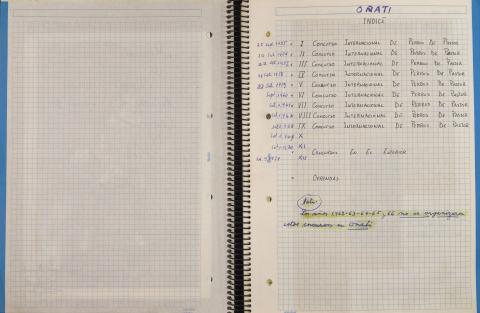 OÑATI
INDICE
I CONCURSO INTERNACIONAL DE PERROS DE PASTOR
II CONCURSO INTERNACIONAL DE PERROS DE PASTOR
III CONCURSO INTERNACIONAL DE PERROS DE PASTOR
IV CONCURSO INTERNACIONAL DE PERROS DE PASTOR
V CONCURSO INTERNACIONAL DE PERROS DE PASTOR
VI CONCURSO INTERNACIONAL DE PERROS DE PASTOR
VII CONCURSO INTERNACIONAL DE PERROS DE PASTOR
VIII CONCURSO INTERNACIONAL DE PERROS DE PASTOR
IX CONCURSO INTERNACIONAL DE PERROS DE PASTOR
X
XI
CONCURSOS EN EL EXTERIOR
XII
OFRENDAS
Nota:
Los años 1962-63-64-65, 66 no se organizaron
estos concursos en Oñati